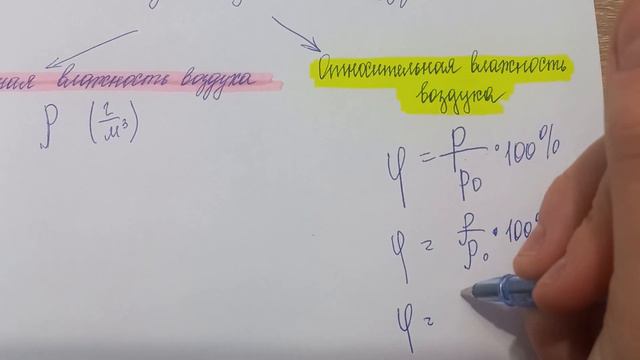 ная влажность воздуха
ρ (г/м³)
Относительная влажность
воздуха
φ = p/p₀ · 100%
φ = ρ/ρ₀ · 100%
φ =